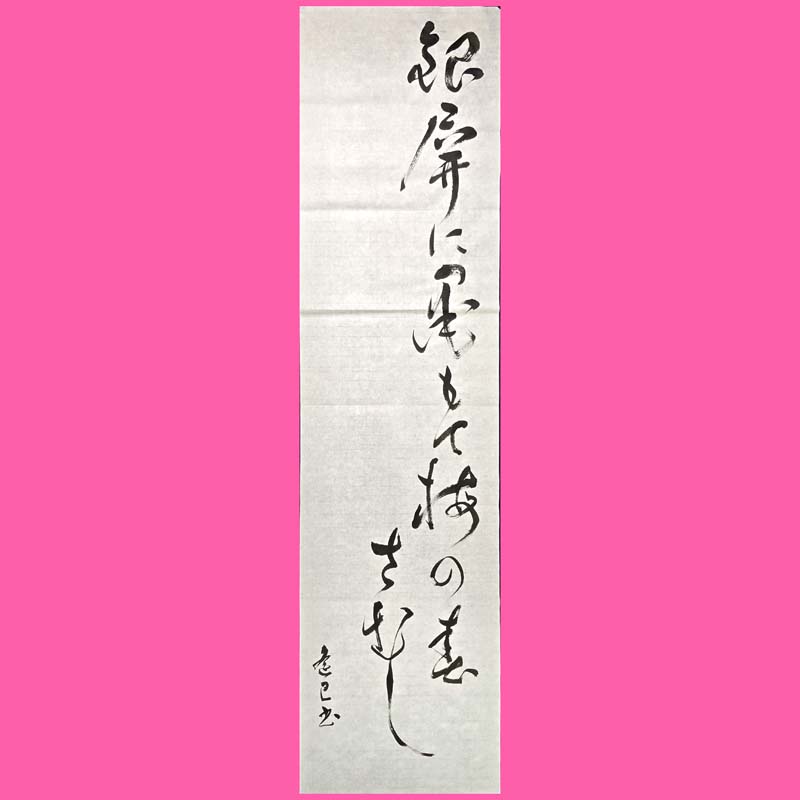 銀屏に墨もて梅の春
さむし
書